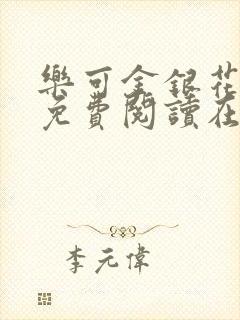 樂可金銀花
免費閱讀在
李元偉